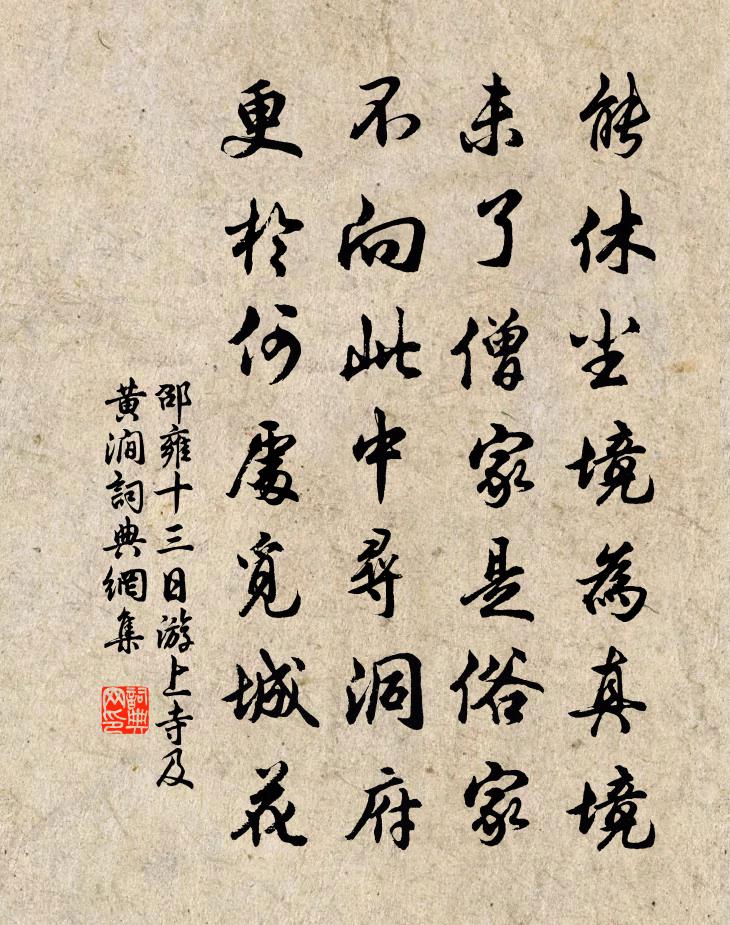 能休尘境為真境
未了僧家是俗家
不向此中尋洞府
更於何處覓城花
邵雍十三日游上寺及
黄澗詞典網集
詞典网印